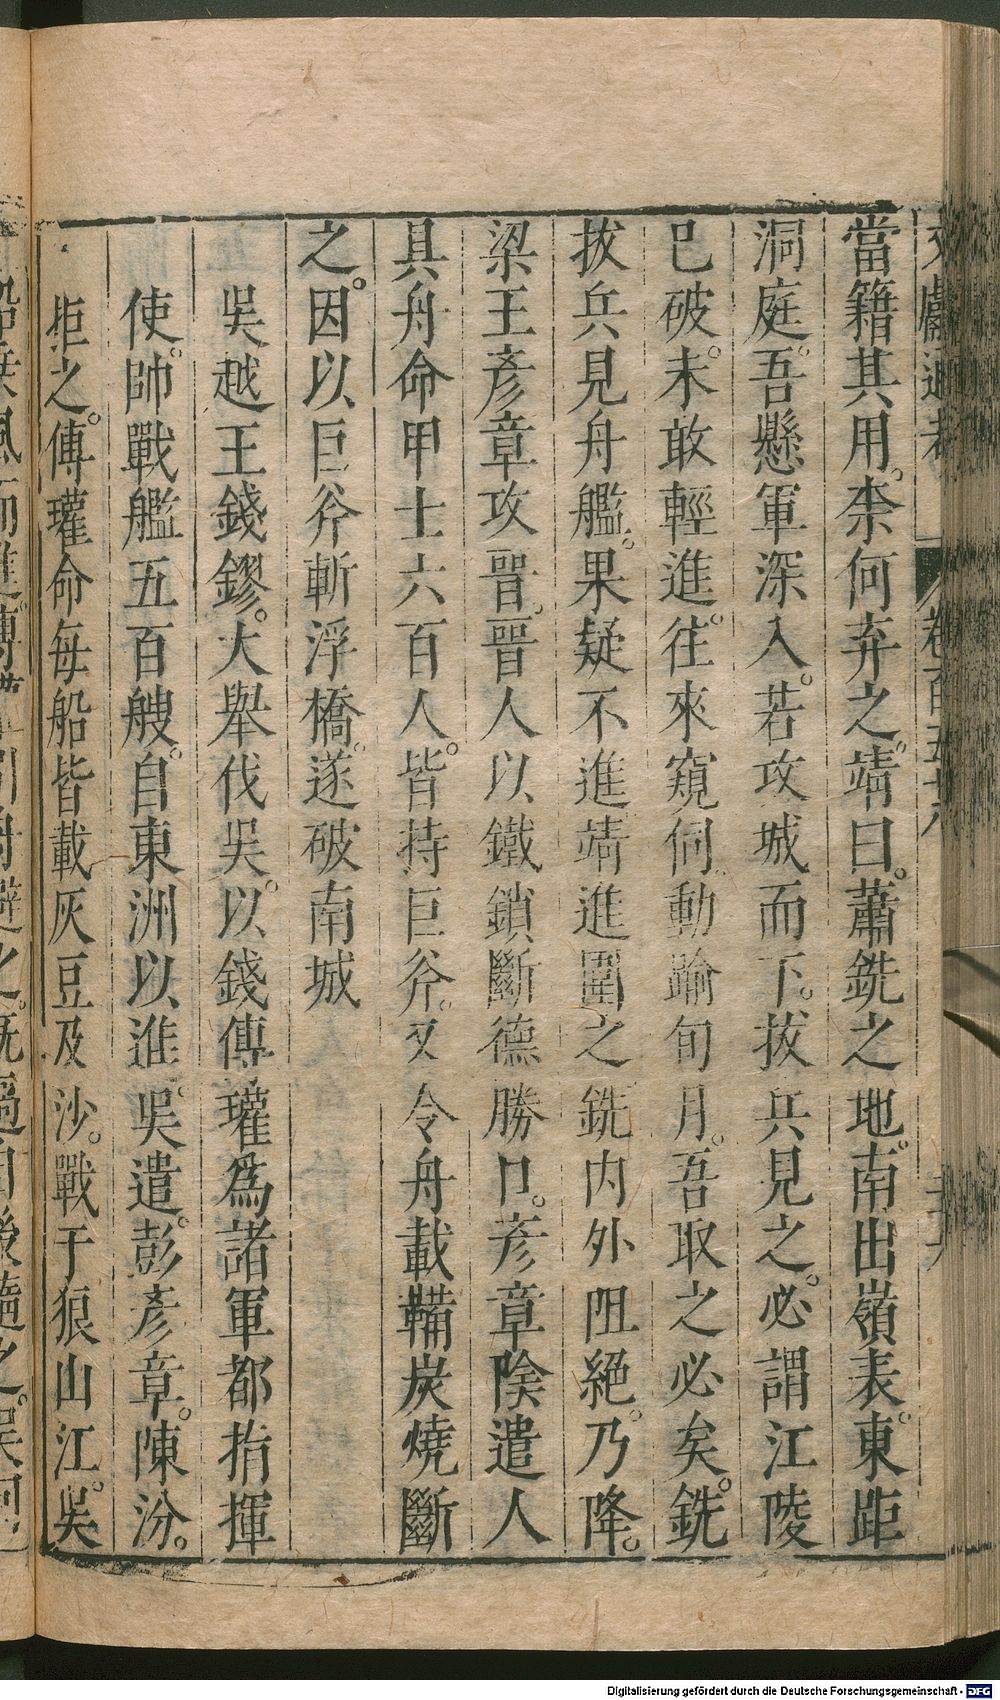 文獻通考 卷百五十八
當籍其用。柰何弃之。靖曰。蕭銑之地。南出嶺表。東距
洞庭。吾懸軍深入。若攻城而下。拔兵見之。必謂江陵
巳破。未敢輕進。往來窺伺動踰旬月。吾取之必矣。銑
拔兵見舟艦。果疑不進靖進圍之銑内外阻絕。乃降。
梁王彥章攻晉。晉人以鐵鎖斷德勝口。彥章陰遣人
具舟命甲士六百人。皆持巨斧。又令舟載韛炭燒斷
之。因以巨斧斬浮橋。遂破南城
吳越王錢鏐。大舉伐吳。以錢傳瓘爲諸軍都指揮
使。帥戰艦五百艘。自東洲以進。吳遣。彭彥章。陳汾。
拒之。傳瓘命每船皆載灰豆及沙。戰于狼山江。吳
Digitalisierung gefördert durch die Deutsche Forschungsgemeinschaft - DFG